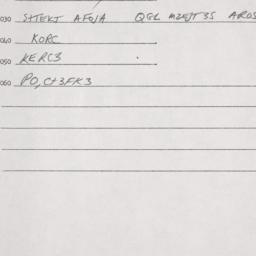 030 SHTEKT AFOJA QGL MZEJT 3S AROS
040 KORC
050 KERC3
060 PO, CH3FK3